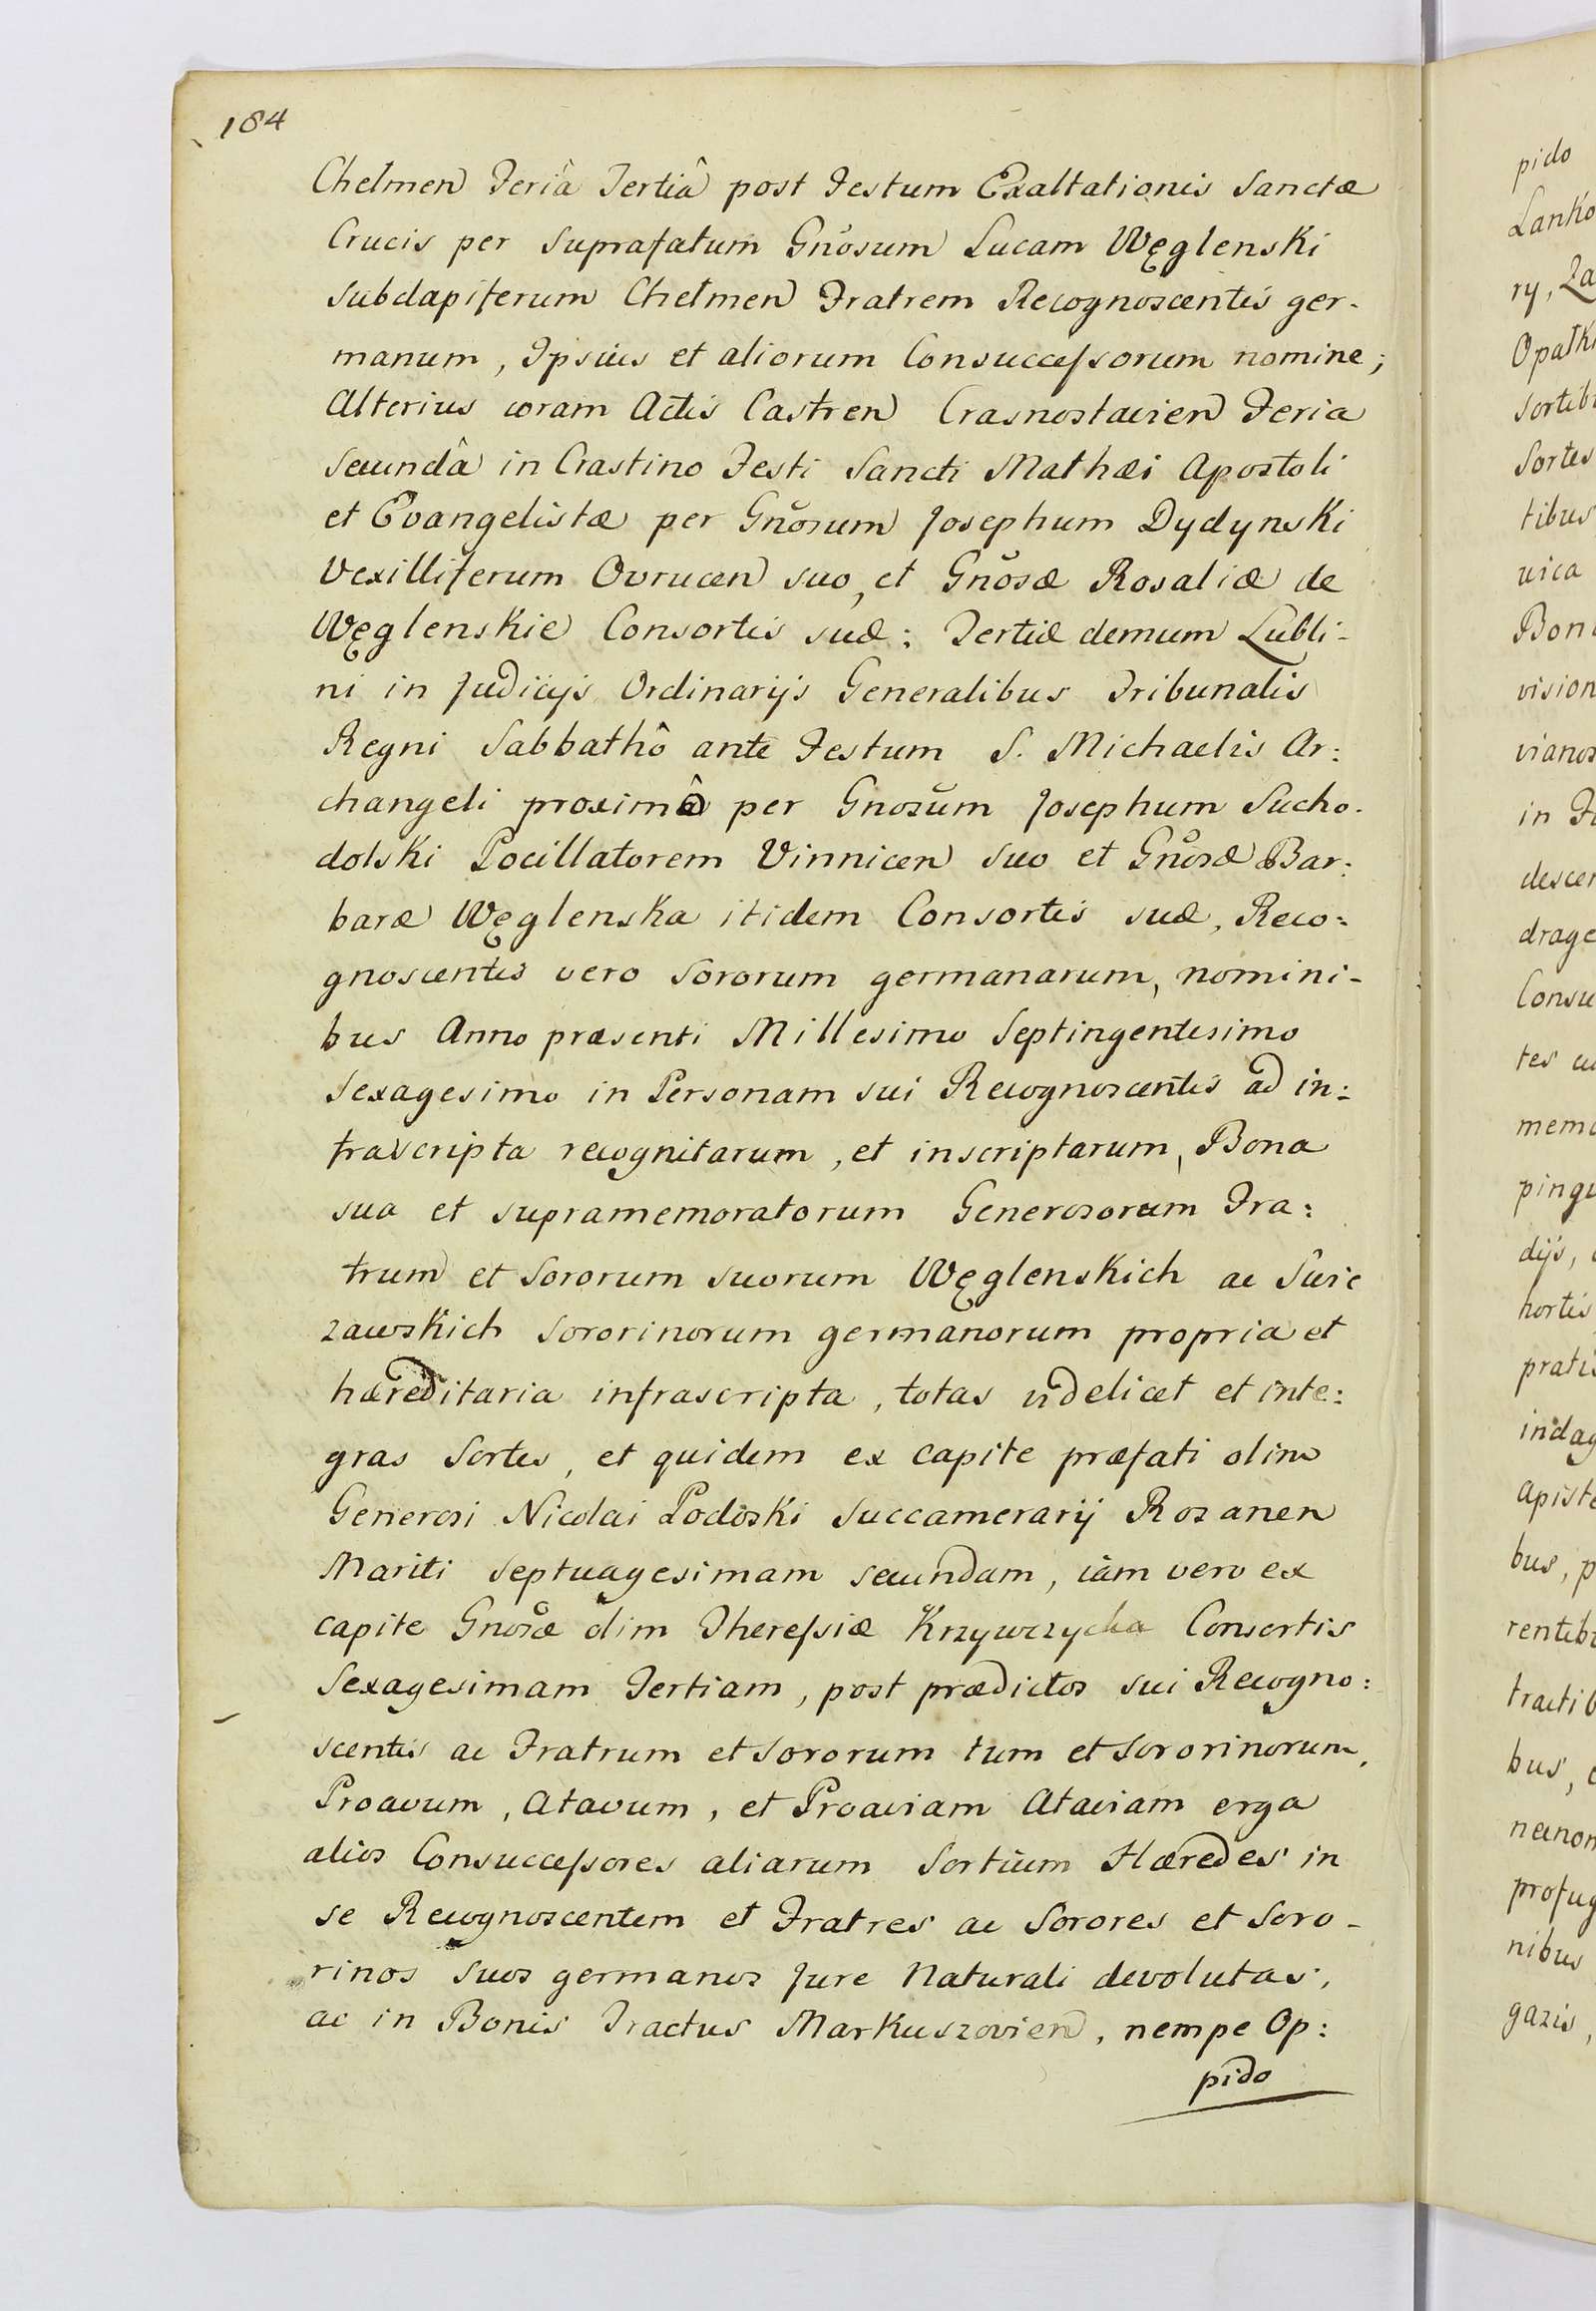 184
Chelmen Feriâ Tertiâ post Festum Exaltationis Sanctæ
Crucis per suprafatum Gnosum Lucam Węglenski
Subdapiferum Chelmen Fratrem Recognoscentis ger-
manum, Ipsius et aliorum Consuccessorum nomine;
Alterius coram Actis Castren Crasnostavien Feria
Secundâ in Crastino Festi Sancti Mathæi Apostoli
et Evangelistæ per Gnosum Josephum Dydynski
Vexilliferum Ovrucen suo, et Gnosæ Rosaliæ de
Węglenskie Consortis suæ; Tertiæ demum Lubli-
ni in Judicijs Ordinarijs Generalibus Tribunalis
Regni Sabbathô ante Festum S. Michaelis Ar:
changeli proximô per Gnosum Josephum Sucho-
dolski Pocillatorem Vinnicen suo et Gnosæ Bar:
baræ Węglenska itidem Consortis suæ, Reco:
gnoscentis vero Sororum germanarum, nomini-
bus Anno præsenti Millesimo Septingentesimo
Sexagesimo in Personam sui Recognoscentis ad in:
frascripta recognitarum, et inscriptarum, Bona
sua et supramemoratorum Generosorum Fra:
trum et Sororum suorum Węglenskich ac Swie
zawskich Sororinorum germanorum propria et
hæreditaria infrascripta, totas videlicet et inte:
gras Sortes, et quidem ex capite præfati olim
Generosi Nicolai Podoski Succamerarij Rozanen
Mariti Septuagesimam secundam, iam vero ex
capite Gnosæ olim Theressiæ Krzywczycka Consortis
Sexagesimam Tertiam, post prædictos sui Recogno:
scentis ac Fratrum et Sororum tum et Sororinorum,
Proavum, Atavum, et Proaviam Ataviam erga
alios Consuccessores aliarum Sortium Hæredes in
se Recognoscentem et Fratres ac Sorores et Soro-
rinos suos germanos Jure Naturali devolutas,
ac in Bonis Tractus Markuszovien, nempe Op:
pido
pido
Lanko
ry, Za
Opatk
sortib
Sortes
tibus
vica
Bon
vision
vianos
in F
descen
drage
Consu
tes
mem
pingu
dijs,
hortis
pratis
indag
apist
bus, p
rentib
tracti
bus,
necnon
profug
nibus
gazis,